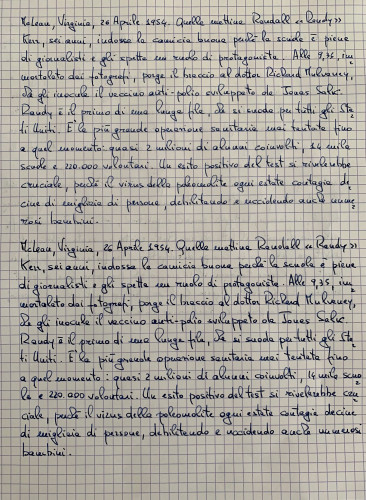 McLean, Virginia, 26 Aprile 1954. Quella mattina Randall «Randy»
Kerr, sei anni, indossa la camicia buona perché la scuola è piena
di giornalisti e gli spetta un ruolo di protagonista. Alle 9,35, im
mortalato dai fotografi, porge il braccio al dottor Richard Mulvaney,
che gli inocula il vaccino anti-polio sviluppato da Jonas Salk.
Randy è il primo di una lunga fila, che si snoda per tutti gli Sta
ti Uniti. È la più grande operazione sanitaria mai tentata fino
a quel momento: quasi 2 milioni di alunni coinvolti, 14 mila
scuole e 220.000 volontari. Un esito positivo del test si rivelerebbe
cruciale, perché il virus della poleomolite ogni estate contagia de
cine di migliaia di persone, debilitando e uccidendo anche nume
rosi bambini.
McLean, Virginia, 26 Aprile 1954. Quella mattina Randall «Randy»
Kerr, sei anni, indossa la camicia buona perché la scuola è piena
di giornalisti e gli spetta un ruolo da protagonista. Alle 9,35, im
mortalato dai fotografi, porge il braccio al dottor Richard Mulvaney,
che gli inocula il vaccino anti-polio sviluppato da Jonas Salk.
Randy è il primo di una lunga fila, che si snoda per tutti gli Sta
ti Uniti. È la più grande operazione sanitaria mai tentata fino
a quel momento: quasi 2 milioni di alunni coinvolti, 14 mila scuo
le e 220.000 volontari. Un esito positivo del test si rivelerebbe cru
ciale, perché il virus della poleomolite ogni estate contagia decine
di migliaia di persone, debilitando e uccidendo anche numerosi
bambini.